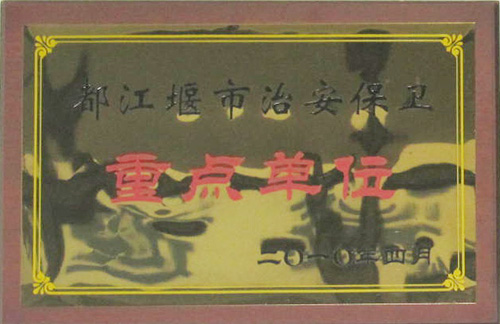 都江堰市治安保卫
重点单位
二〇一〇年四月